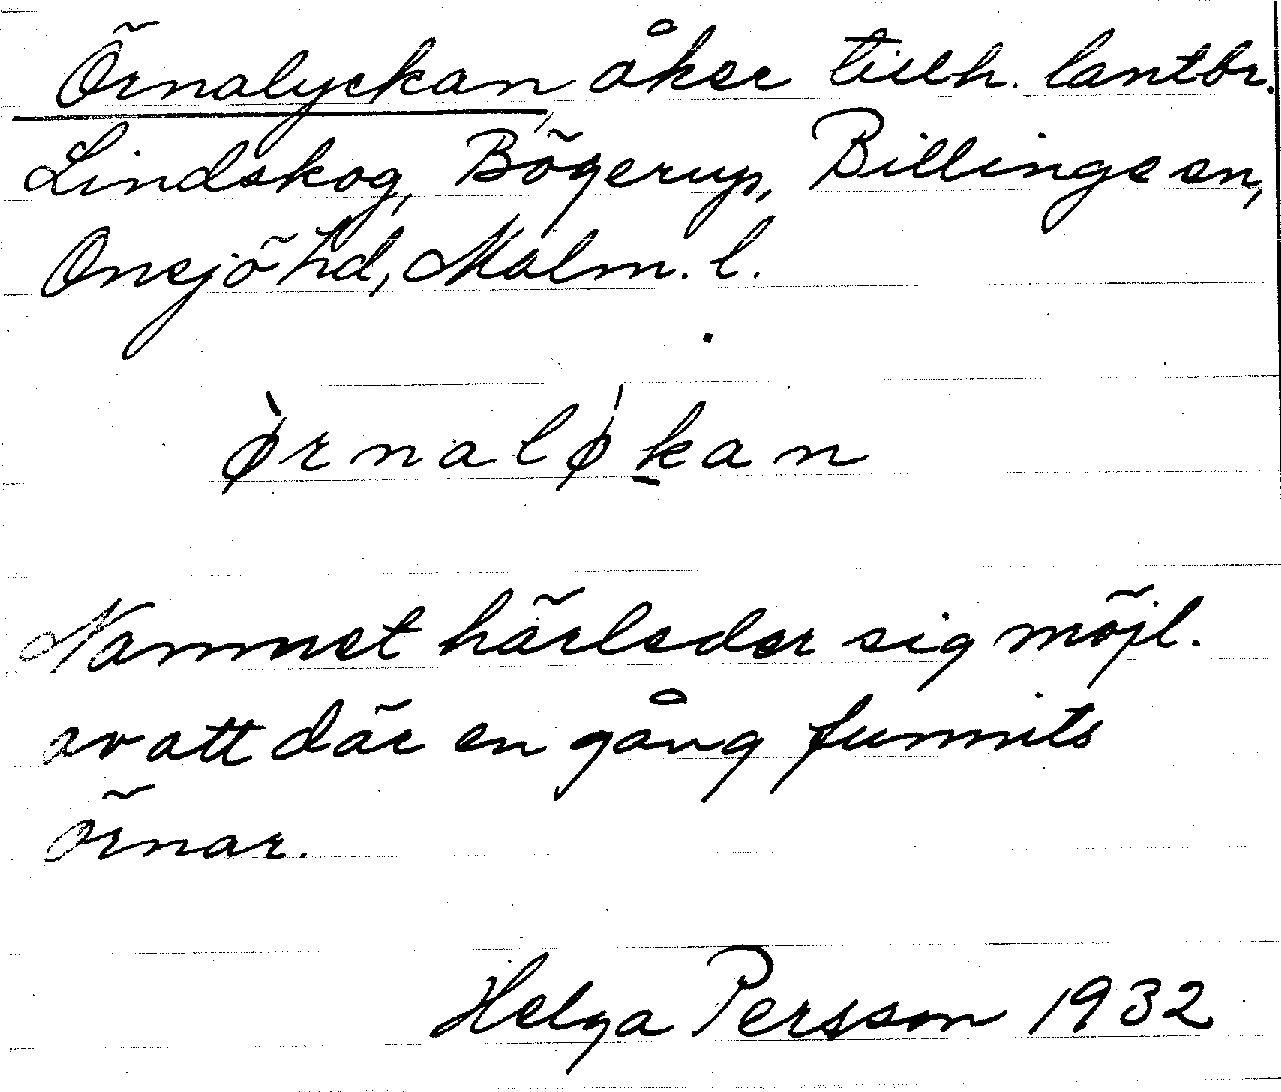 Örnalyckan, åker tillh. lantbr.
Lindskog, Bögerup, Billinge sn,
Onsjö hd, Malm. l.
ø̀rnalǿḵan
Namnet härleder sig möjl.
av att där en gång funnits
örnar.
Helga Persson 1932